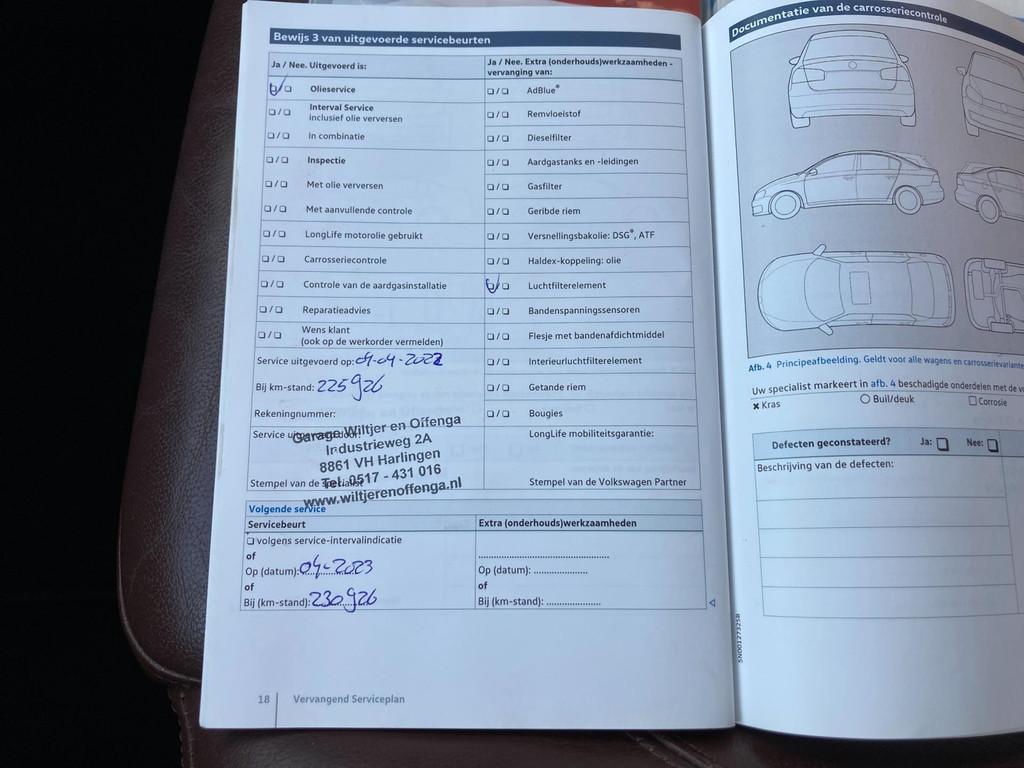 Bewijs 3 van uitgevoerde servicebeurten
Ja / Nee. Uitgevoerd is:
Olieservice
Interval Service
inclusief olie verversen
In combinatie
Inspectie
Met olie verversen
Met aanvullende controle
LongLife motorolie gebruikt
Carrosseriecontrole
Controle van de aardgasinstallatie
Reparatieadvies
Wens klant
(ook op de werkorder vermelden)
Service uitgevoerd op: 04-04-2022
Bij km-stand: 225926
Rekeningnummer:
Service uitgevoerd door:
Garage Wiltjer en Offenga
Industrieweg 2A
8861 VH Harlingen
Tel. 0517 - 431 016
www.wiltjerenoffenga.nl
Stempel van de specialist
Ja / Nee. Extra (onderhouds)werkzaamheden -
vervanging van:
AdBlue®
Remvloeistof
Dieselfilter
Aardgastanks en -leidingen
Gasfilter
Geribde riem
Versnellingsbakolie: DSG®, ATF
Haldex-koppeling: olie
Luchtfilterelement
Bandenspanningssensoren
Flesje met bandenafdichtmiddel
Interieurluchtfilterelement
Getande riem
Bougies
LongLife mobiliteitsgarantie:
Stempel van de Volkswagen Partner
Volgende service
Servicebeurt
volgens service-intervalindicatie
of
Op (datum): 04-2023
of
Bij (km-stand): 230926
Extra (onderhouds)werkzaamheden
Op (datum):
of
Bij (km-stand):
18 Vervangend Serviceplan
Documentatie van de carrosseriecontrole
Afb. 4 Principeafbeelding. Geldt voor alle wagens en carrosserievariante
Uw specialist markeert in afb. 4 beschadigde onderdelen met de
Kras Buil/deuk Corrosie
Defecten geconstateerd? Ja: Nee:
Beschrijving van de defecten: